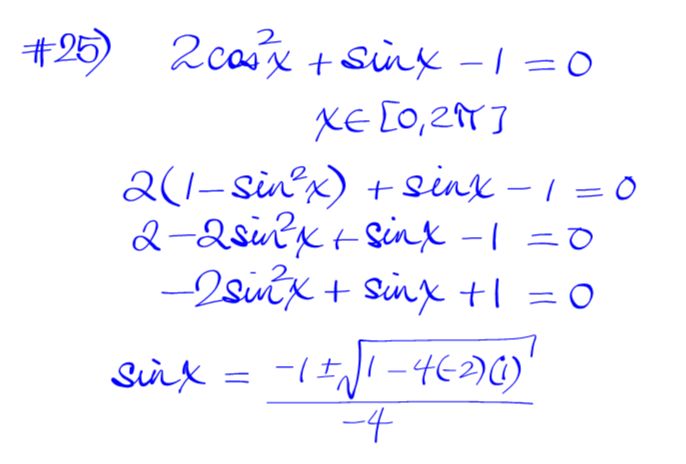 #25) 2cos²x + sinx - 1 = 0
x∈[0,2π]
2(1-sin²x) + sinx - 1 = 0
2-2sin²x + sinx - 1 = 0
-2sin²x + sinx + 1 = 0
sinx = (-1±√(1-4(-2)(1)))/-4